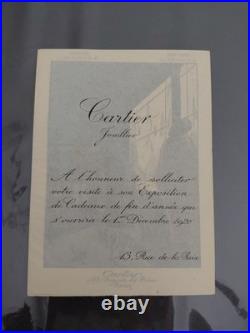 Cartier
Joaillier
A l'honneur de solliciter
votre visite à son Exposition
de Cadeaux de fin d'année qui
s'ouvrira le 1er Décembre 1920
13, Rue de la Paix
Cartier